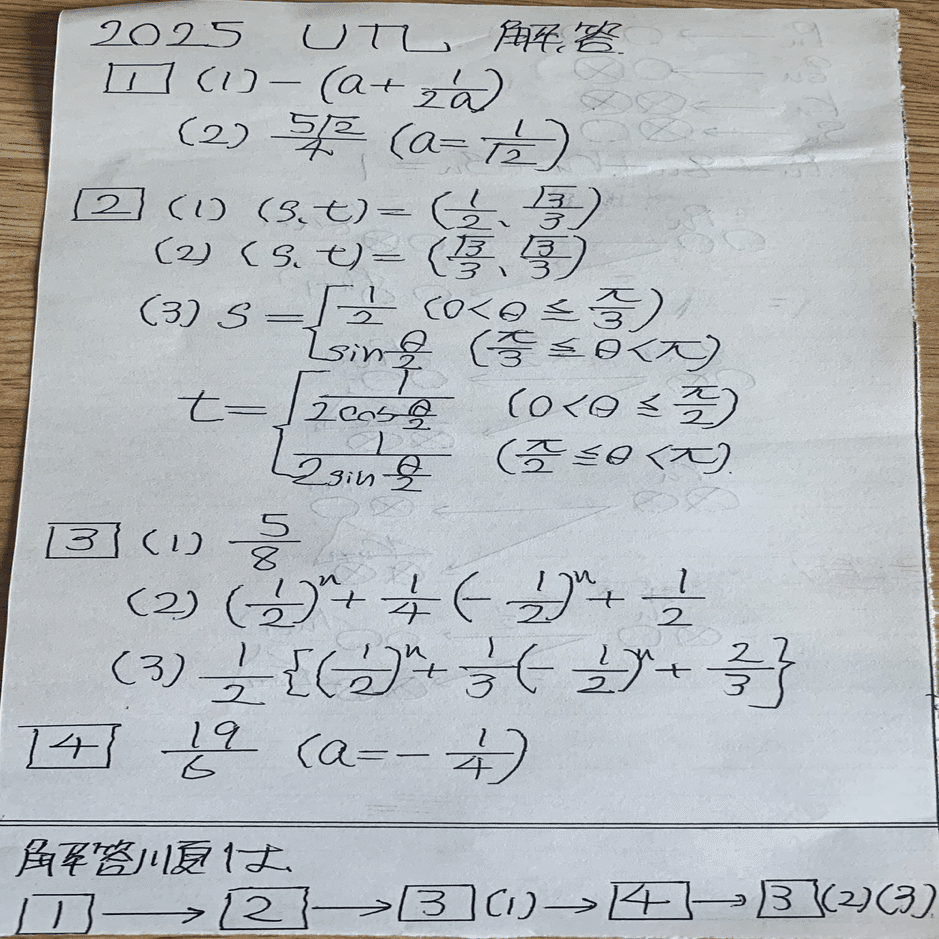 2025 UTL 解答
1 (1) -(a+1/2a)
(2) 5√2/4 (a=1/√2)
2 (1) (s、t)=(1/2、√3/3)
(2) (s、t)=(√3/3、√3/3)
(3) s={1/2 (0<θ≦π/3)
sinθ/2 (π/3≦θ<π)
t={1/2cosθ/2 (0<θ≦π/2)
1/2sinθ/2 (π/2≦θ<π)
3 (1) 5/8
(2) (1/2)^n+1/4(-1/2)^n+1/2
(3) 1/2{(1/2)^n+1/3(-1/2)^n+2/3}
4 19/6 (a=-1/4)
解答順は
1→2→3(1)→4→3(2)(3)